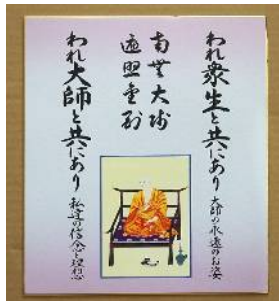 われ衆生と共にあり 大師の永遠のお姿
南無大師
遍照金剛
われ大師と共にあり 私達の信念と理想